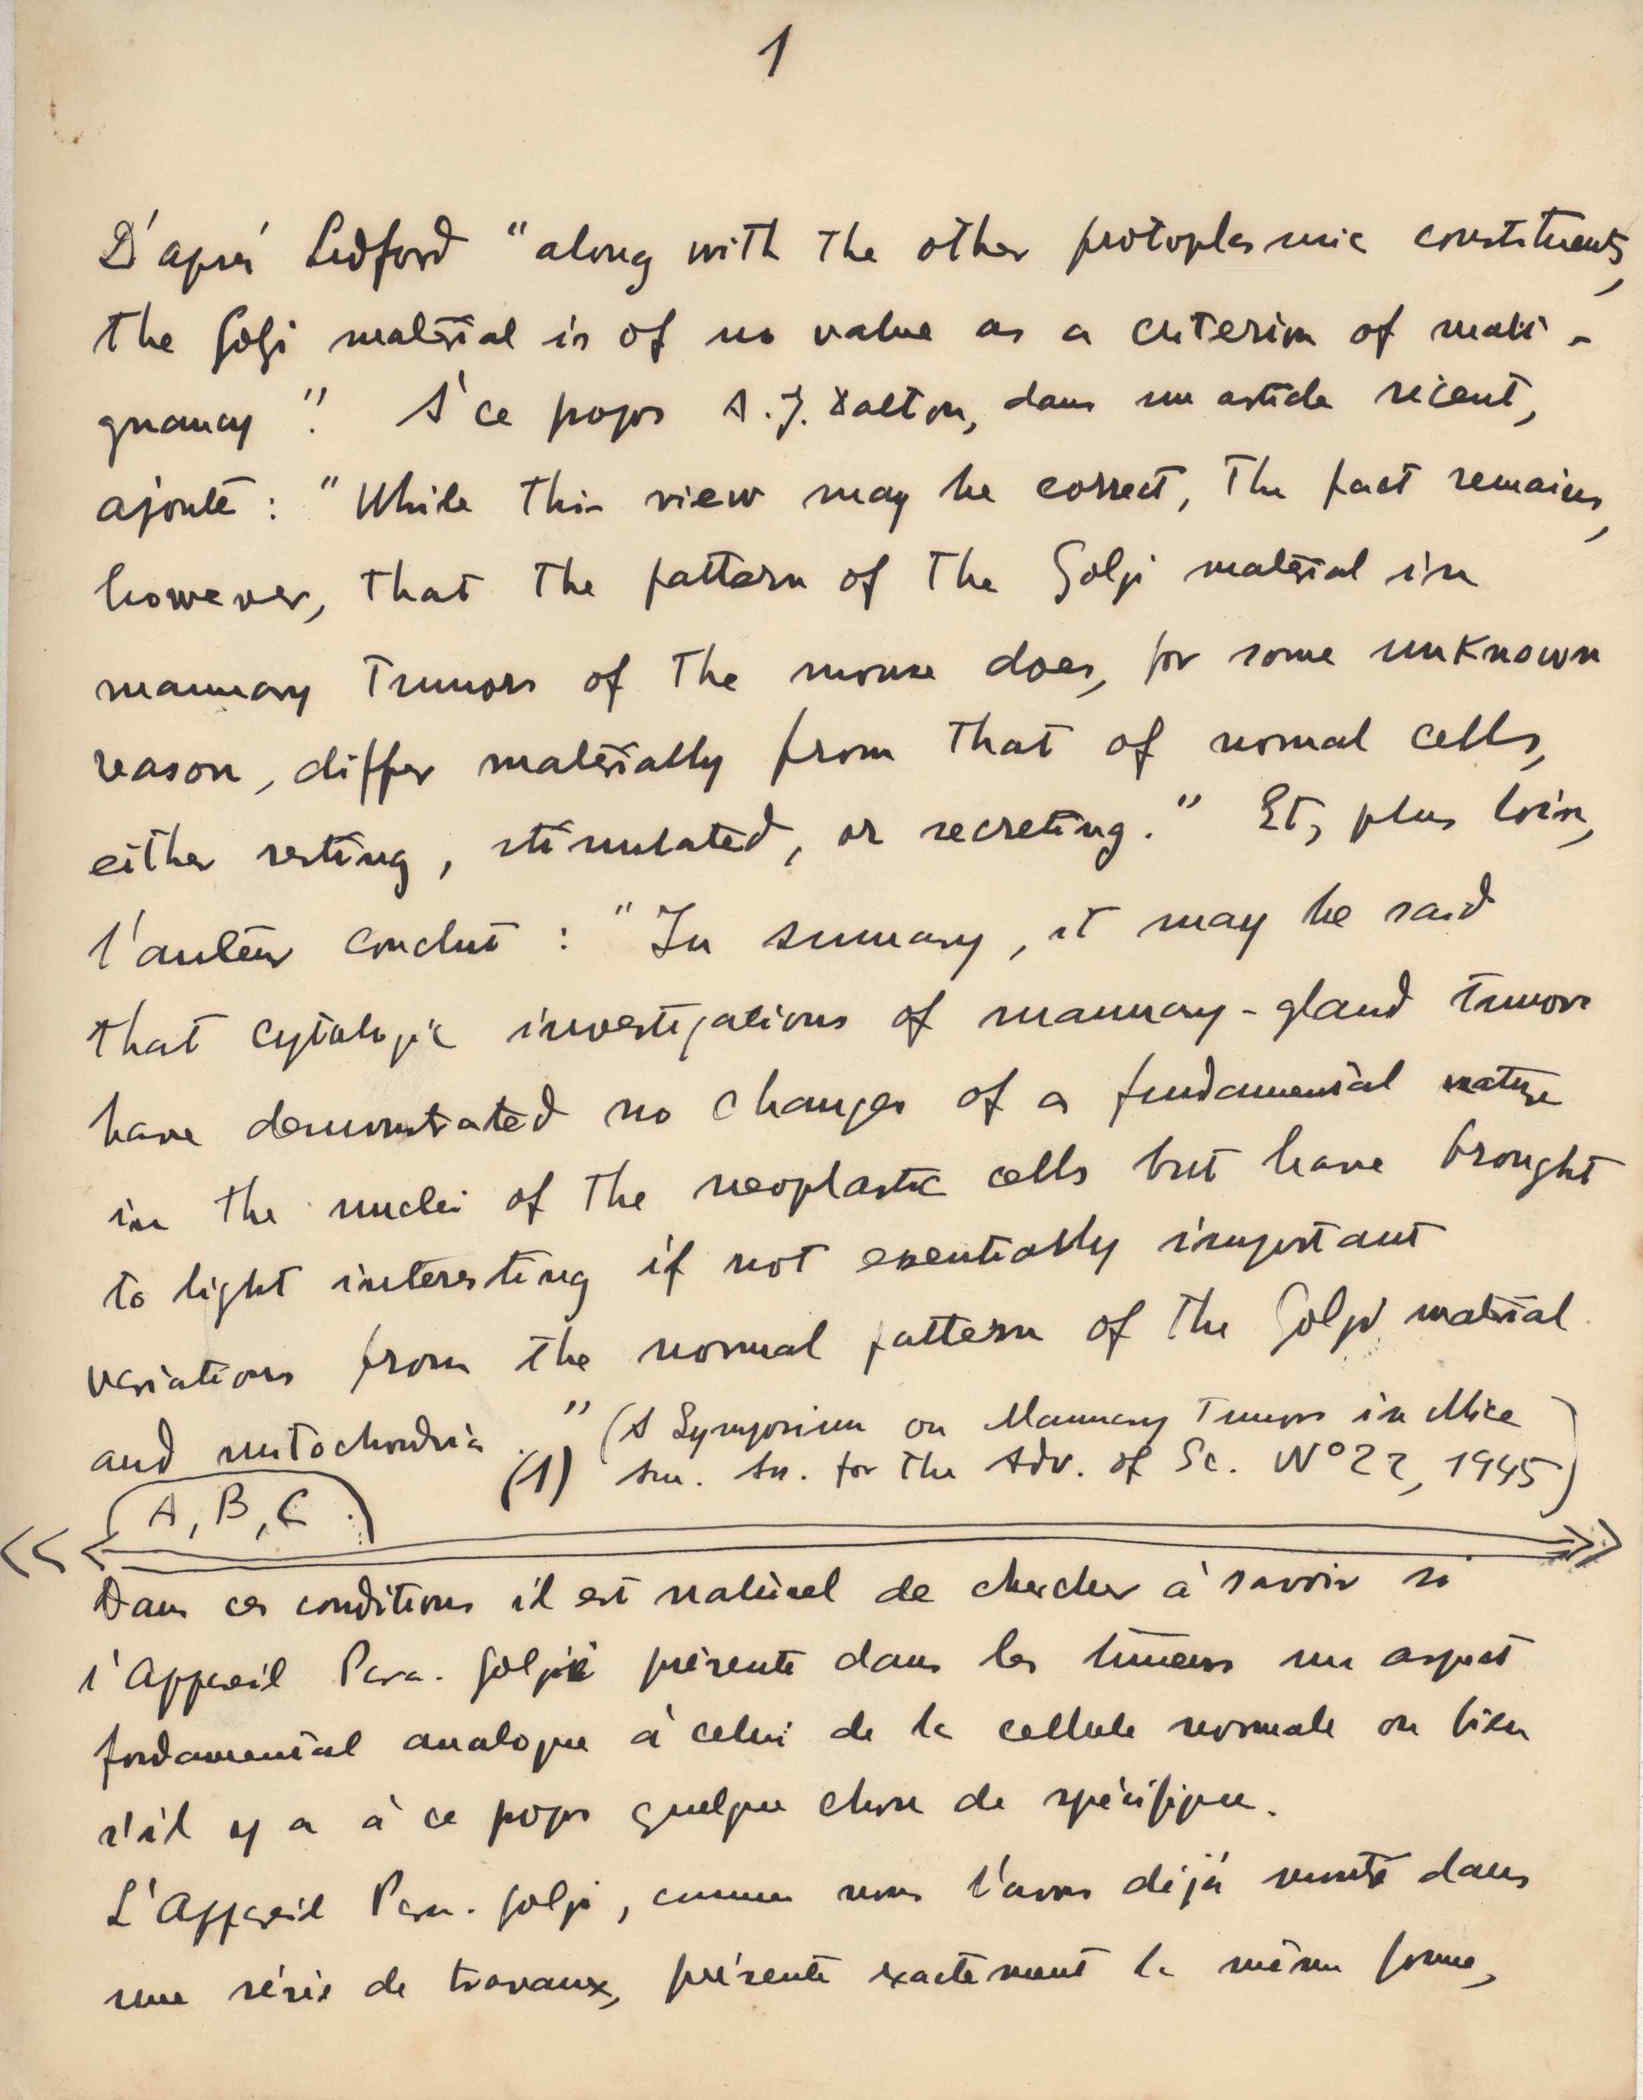 1
D'après Ludford "along with the other protoplasmic constituents,
the Golgi material is of no value as a criterion of mali-
gnancy". A ce propos A. J. Dalton, dans un article récent,
ajoute : "While this view may be correct, the fact remains,
however, that the pattern of the Golgi material in
mammary tumors of the mouse does, for some unknown
reason, differ materially from that of normal cells,
either resting, stimulated, or secreting." Et, plus loin,
l'auteur conclut : "In summary, it may be said
that cytologic investigations of mammary-gland tumors
have demonstrated no changes of a fundamental nature
in the nuclei of the neoplastic cells but have brought
to light interesting if not essentially important
variations from the normal pattern of the Golgi material
and mitochondria." (A Symposium on Mammary Tumors in Mice
(1) Am. As. for the Adv. of Sc. Nº 22, 1945)
A, B, C
Dans ces conditions il est naturel de chercher à savoir si
l'Appareil Para-Golgi présente dans les tumeurs un aspect
fondamental analogue à celui de la cellule normale ou bien
s'il y a à ce propos quelque chose de spécifique.
L'Appareil Para-Golgi, comme nous l'avons déjà montré dans
une série de travaux, présente exactement la même forme,